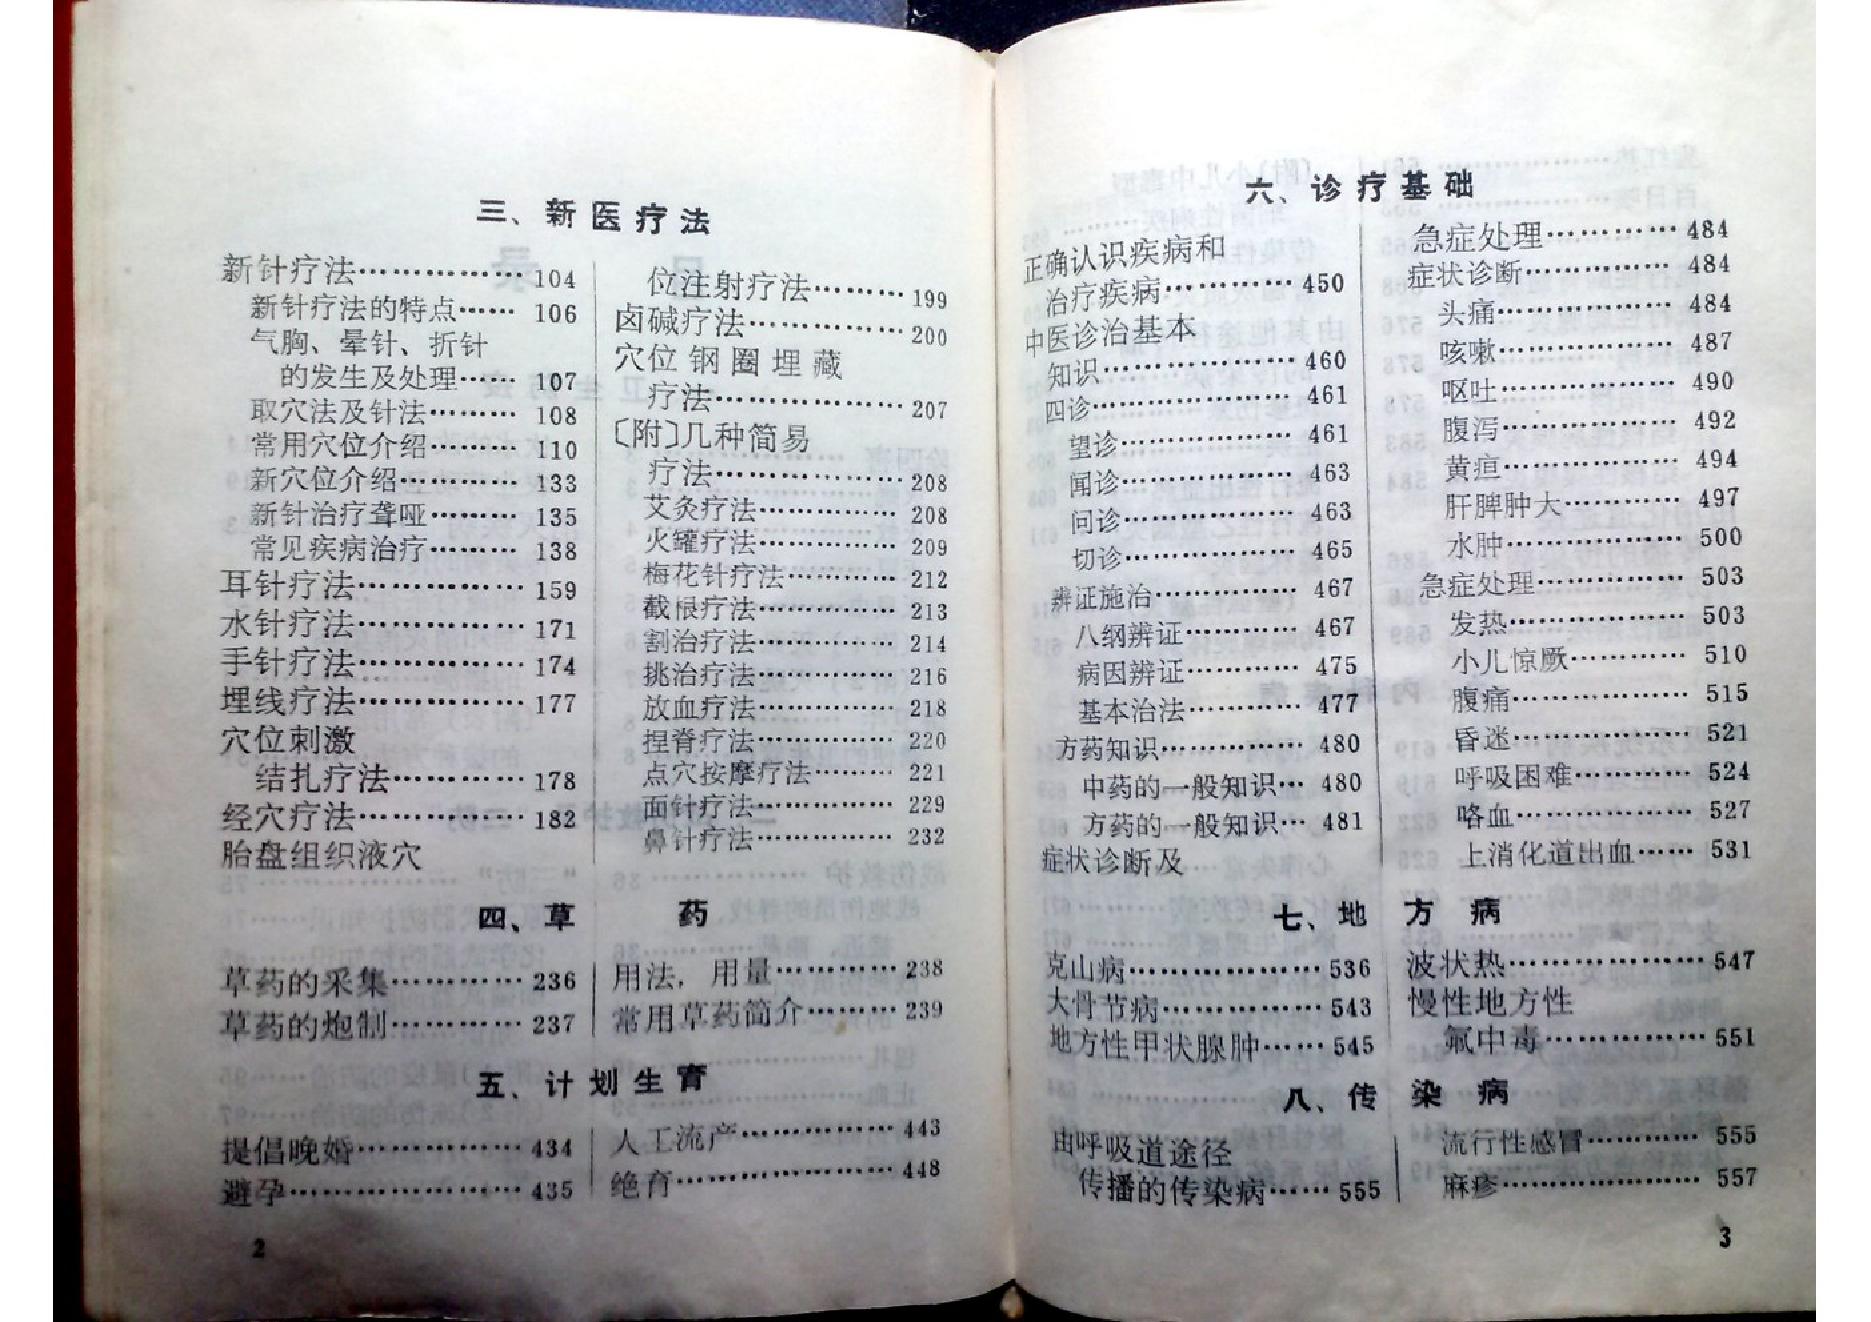 三、新医疗法
新针疗法……………104
新针疗法的特点……106
气胸、晕针、折针
的发生及处理……107
取穴法及针法………108
常用穴位介绍………110
新穴位介绍…………133
新针治疗聋哑………135
常见疾病治疗………138
耳针疗法……………159
水针疗法……………171
手针疗法……………174
埋线疗法……………177
穴位刺激
结扎疗法…………178
经穴疗法……………182
胎盘组织液穴
位注射疗法………199
卤碱疗法……………200
穴位钢圈埋藏
疗法………………207
〔附〕几种简易
疗法………………208
艾灸疗法…………208
火罐疗法…………209
梅花针疗法………212
截根疗法…………213
割治疗法…………214
挑治疗法…………216
放血疗法…………218
捏脊疗法…………220
点穴按摩疗法……221
面针疗法…………229
鼻针疗法…………232
四、草 药
草药的采集…………236
草药的炮制…………237
用法,用量…………238
常用草药简介………239
五、计划生育
提倡晚婚……………434
避孕…………………435
人工流产……………443
绝育…………………448
2
六、诊疗基础
正确认识疾病和
治疗疾病…………450
中医诊治基本
知识………………460
四诊………………461
望诊……………461
闻诊……………463
问诊……………463
切诊……………465
辨证施治…………467
八纲辨证…………467
病因辨证…………475
基本治法…………477
方药知识…………480
中药的一般知识…480
方药的一般知识…481
症状诊断及
急症处理…………484
症状诊断…………484
头痛……………484
咳嗽……………487
呕吐……………490
腹泻……………492
黄疸……………494
肝脾肿大…………497
水肿……………500
急症处理…………503
发热……………503
小儿惊厥…………510
腹痛……………515
昏迷……………521
呼吸困难…………524
咯血……………527
上消化道出血……531
七、地 方 病
克山病………………536
大骨节病……………543
地方性甲状腺肿……545
波状热………………547
慢性地方性
氟中毒……………551
八、传 染 病
由呼吸道途径
传播的传染病……555
流行性感冒…………555
麻疹………………557
3